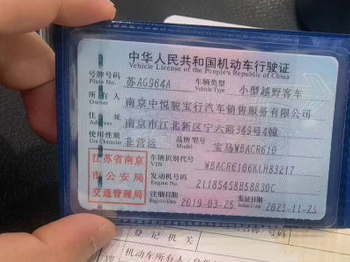 中华人民共和国机动车行驶证
Vehicle License of the People's Republic of China
号牌号码 苏AG964A 车辆类型 小型越野客车
Plate No. Vehicle Type
所有人 南京中悦骏宝行汽车销售服务有限公司
Owner
住址 南京市江北新区宁六路349号4幢
Address
使用性质 非营运 品牌型号 宝马WBACR610
Use Character Model
江苏省南京
市公安局
交通管理局
车辆识别代号
VIN WBACR6106KLH83217
发动机号码
Engine No.
注册日期 2019-03-25 发证日期 2023-11-25
Register Date Issue Date
登记机关
机动车所有人